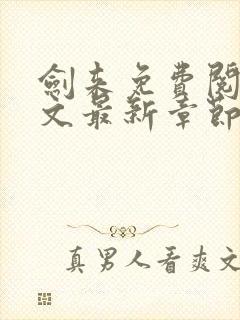 劍來免費閱
文最新章節
真男人看爽文